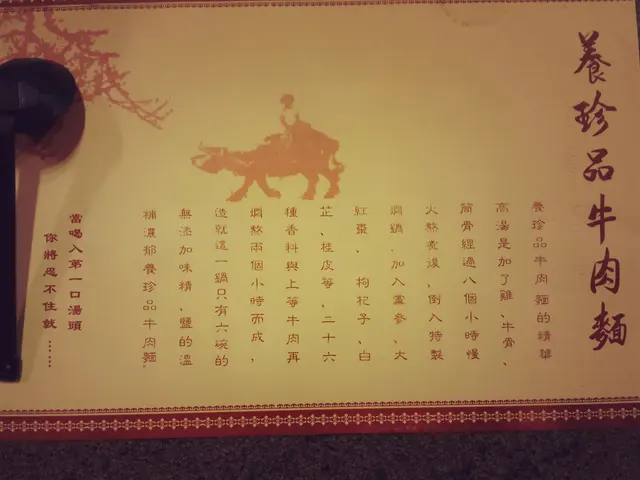 養珍品牛肉麵
養珍品牛肉麵的精華
高湯是加了雞、牛骨、
筒骨經過八個小時慢
火熬煮後，倒入特製
燜鍋，加入靈參、大
紅棗、枸杞子、白
芷、桂皮等，二十六
種香料與上等牛肉再
燜熬兩個小時而成，
造就這一鍋只有六碗的
無添加味精、鹽的溫
補濃郁養珍品牛肉麵。
當喝入第一口湯頭
你將忍不住就……